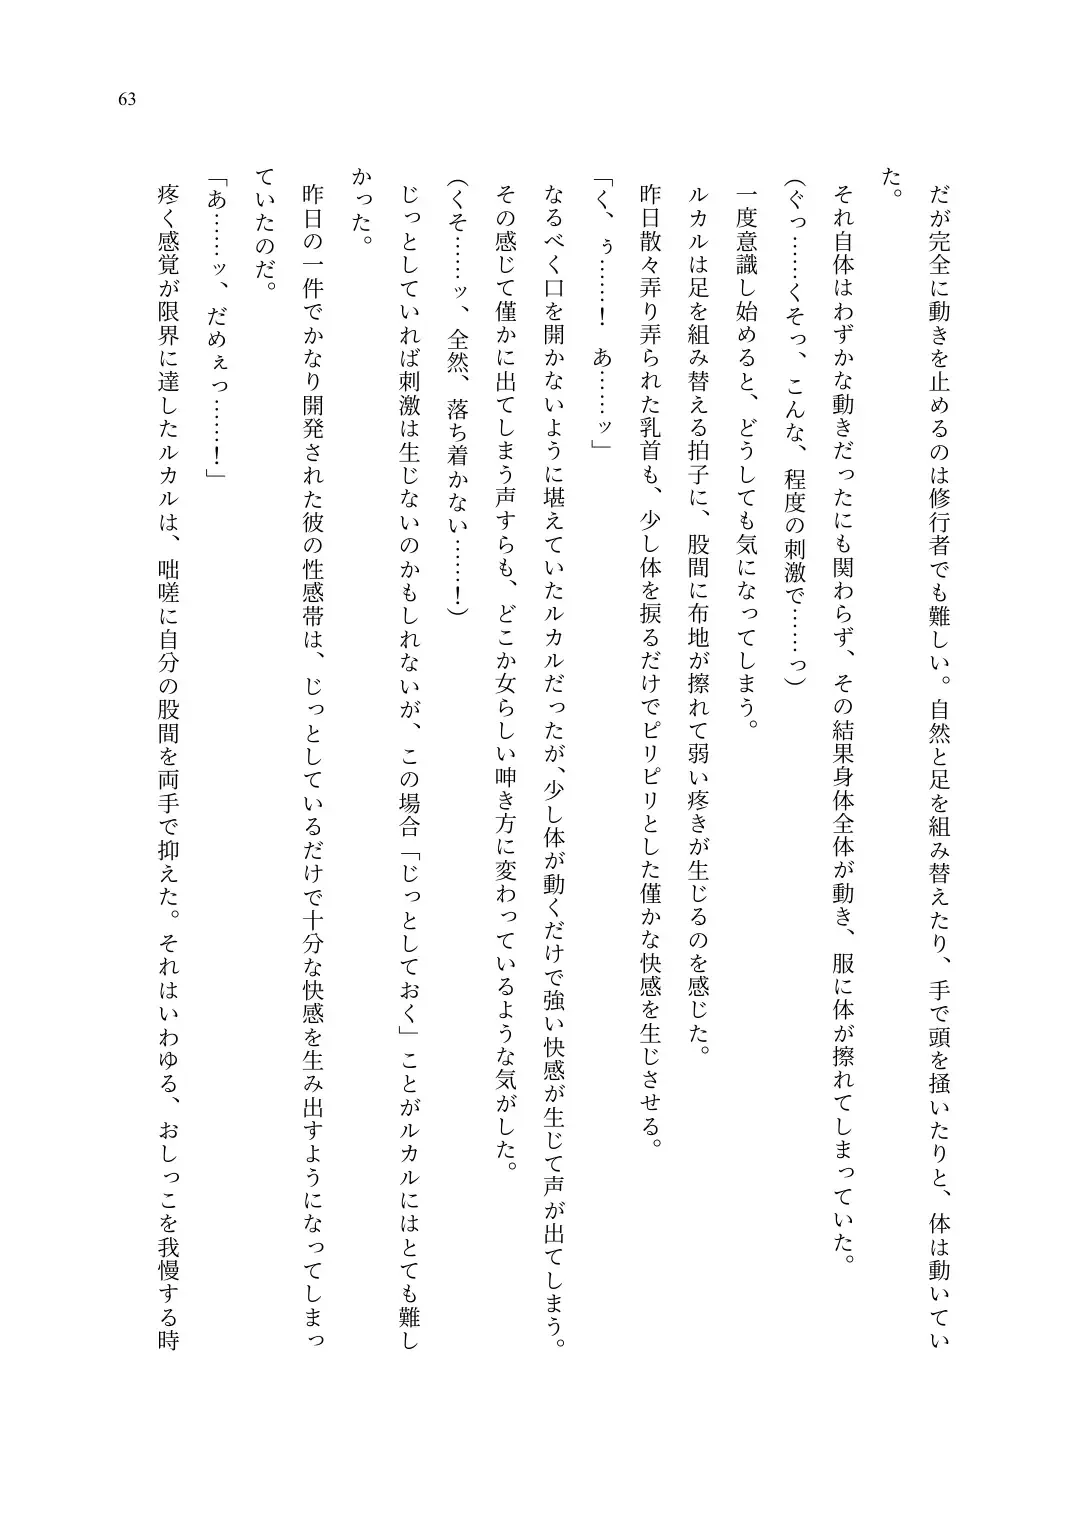 63
だが完全に動きを止めるのは修行者でも難しい。自然と足を組み替えたり、手で頭を掻いたりと、体は動いてい
た。
それ自体はわずかな動きだったにも関わらず、その結果身体全体が動き、服に体が擦れてしまっていた。
(ぐっ……くそっ、こんな、程度の刺激で……っ)
一度意識し始めると、どうしても気になってしまう。
ルカルは足を組み替える拍子に、股間に布地が擦れて弱い疼きが生じるのを感じた。
昨日散々弄り弄られた乳首も、少し体を捩るだけでピリピリとした僅かな快感を生じさせる。
「く、ぅ……！　あ……ッ」
なるべく口を開かないように堪えていたルカルだったが、少し体が動くだけで強い快感が生じて声が出てしまう。
その感じて僅かに出てしまう声すらも、どこか女らしい呻き方に変わっているような気がした。
(くそ……ッ、全然、落ち着かない……！)
じっとしていれば刺激は生じないのかもしれないが、この場合「じっとしておく」ことがルカルにはとても難し
かった。
昨日の一件でかなり開発された彼の性感帯は、じっとしているだけで十分な快感を生み出すようになってしまっ
ていたのだ。
「あ……ッ、だめぇっ……！」
疼く感覚が限界に達したルカルは、咄嗟に自分の股間を両手で抑えた。それはいわゆる、おしっこを我慢する時